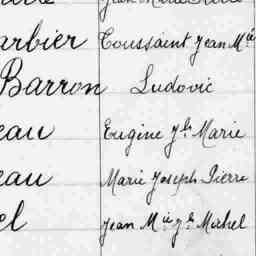 arbier Toussaint Jean Mie
Barron Ludovic
eau Eugène Jh Marie
eau Marie Joseph Pierre
el Jean Mie Jh Michel